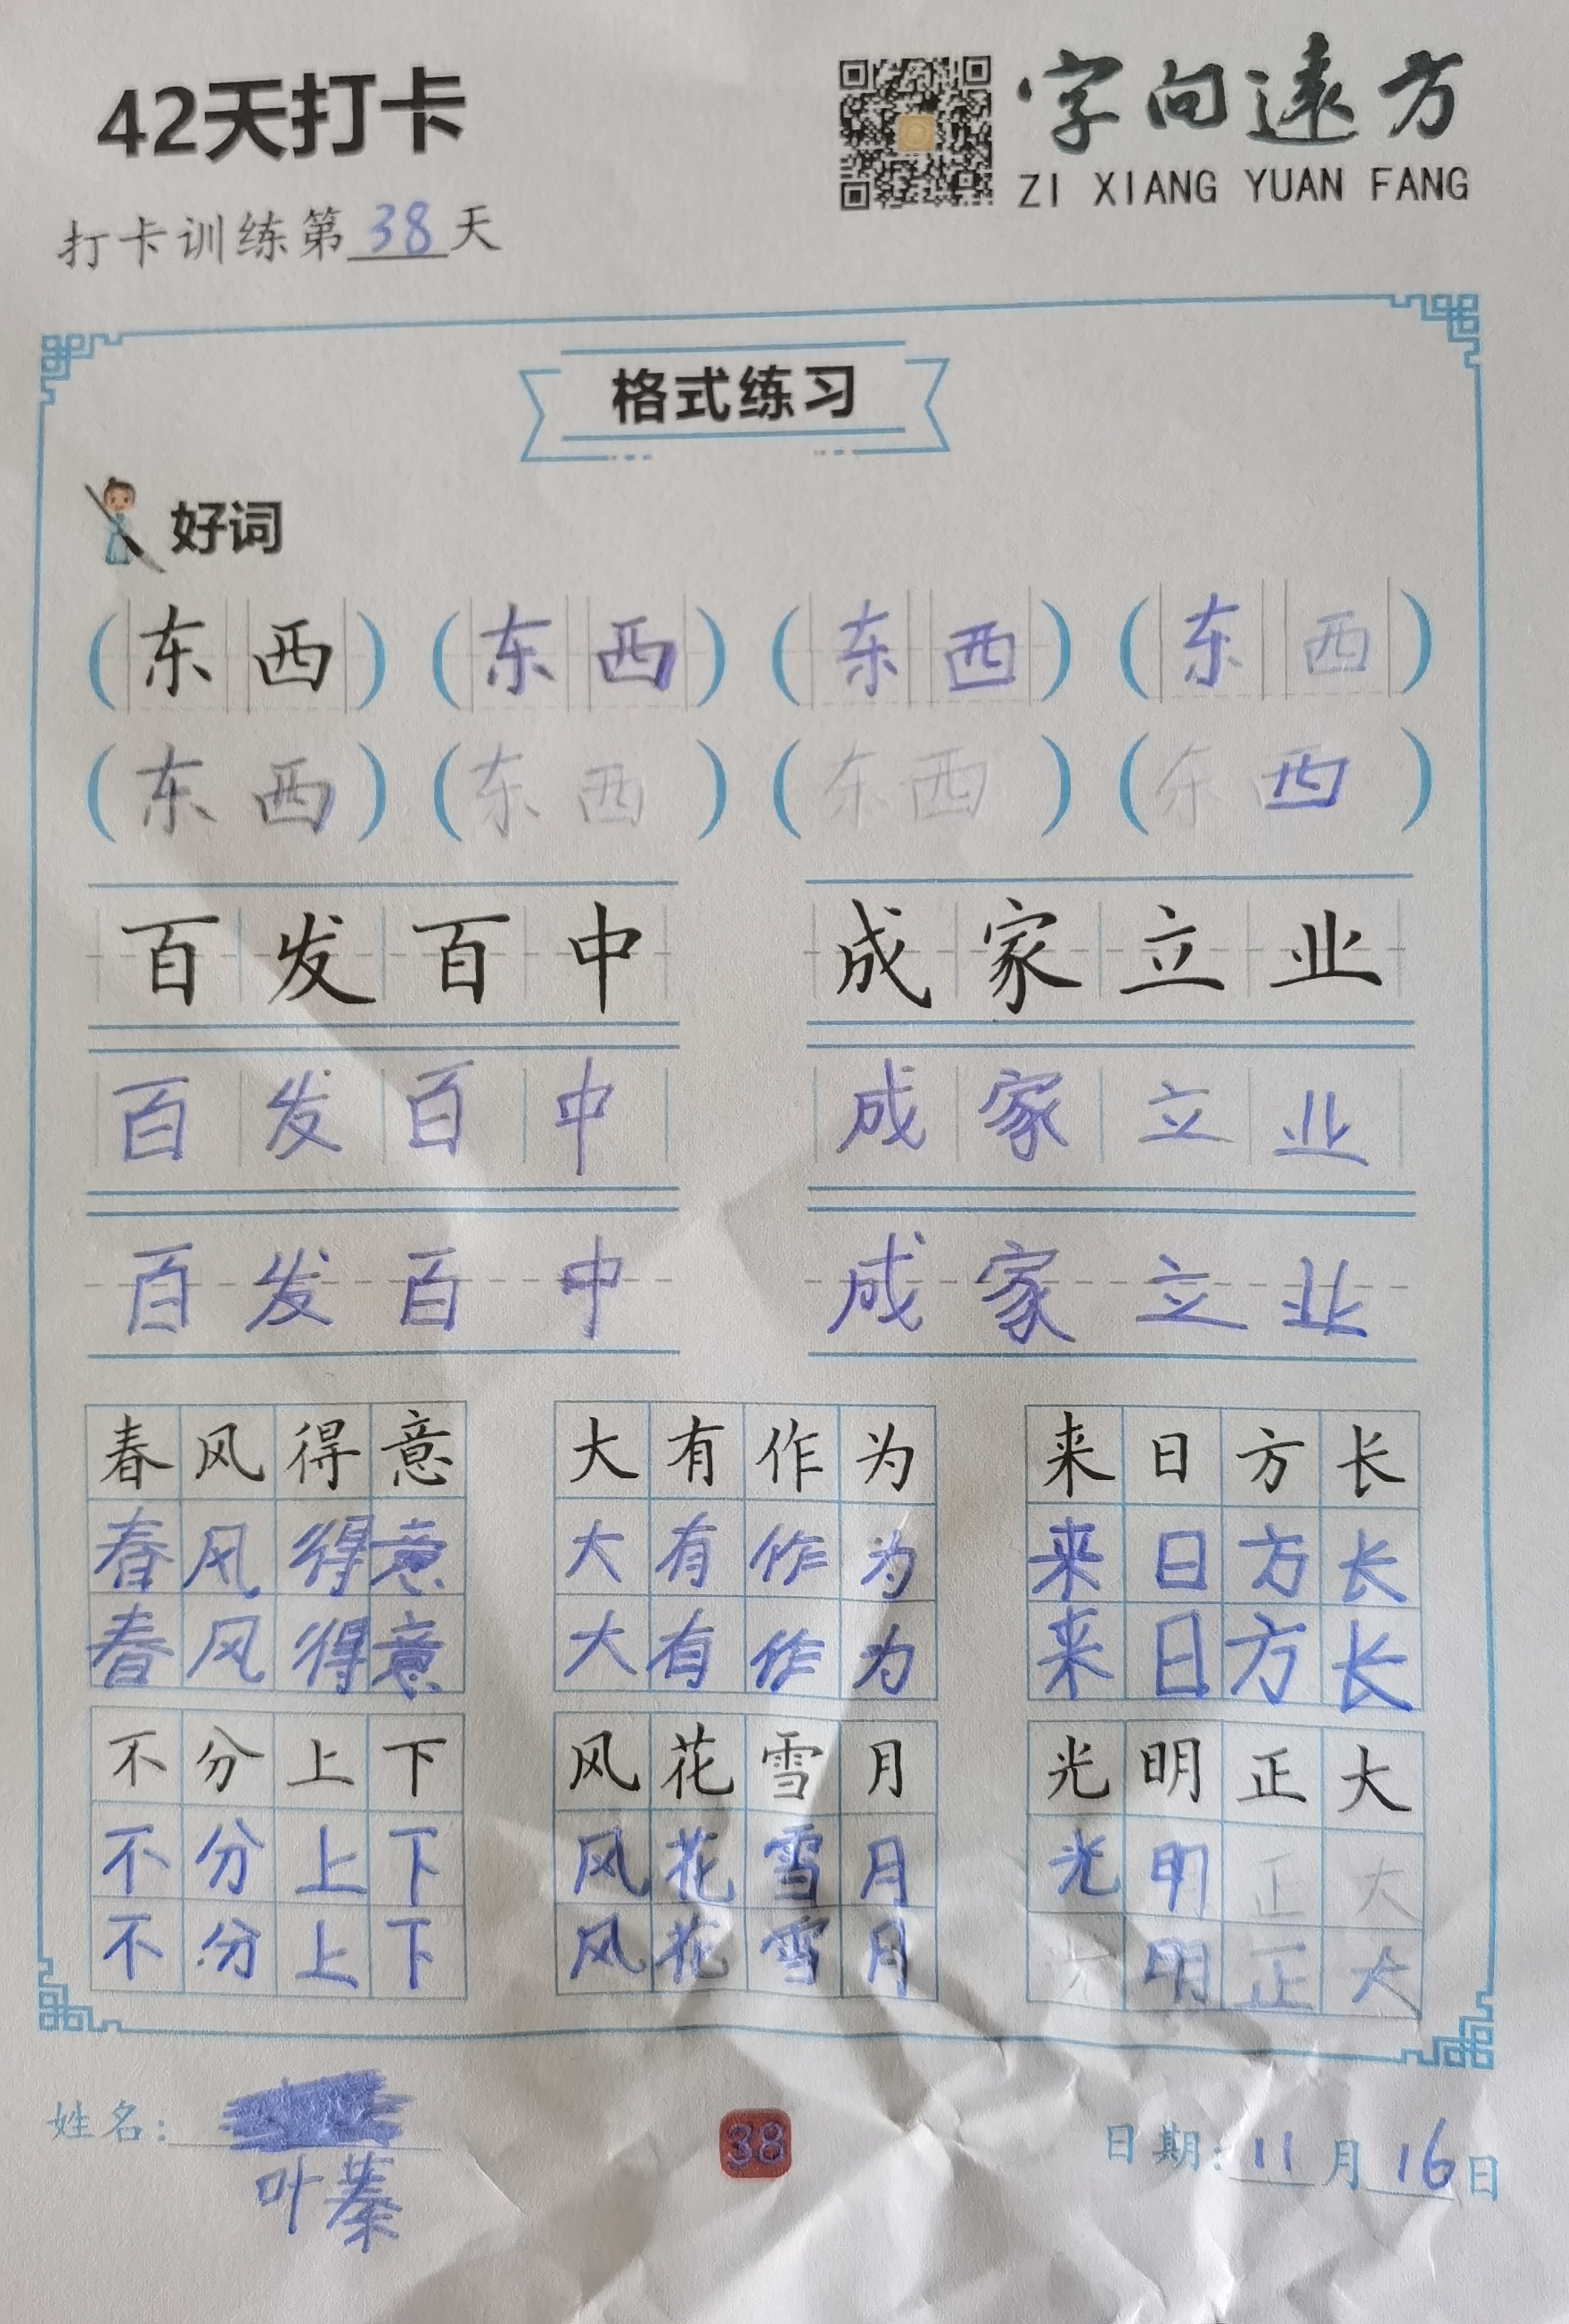 42天打卡
字向遠方
ZI XIANG YUAN FANG
打卡训练第38天
格式练习
好词
(东西) (东西) (东西) (东西)
(东西) (东西) (东西) (东西)
百发百中 成家立业
百发百中 成家立业
百发百中 成家立业
春风得意 大有作为 来日方长
春风得意 大有作为 来日方长
春风得意 大有作为 来日方长
不分上下 风花雪月 光明正大
不分上下 风花雪月 光明正大
不分上下 风花雪月 光明正大
姓名: 38 日期:11月16日
叶蓁